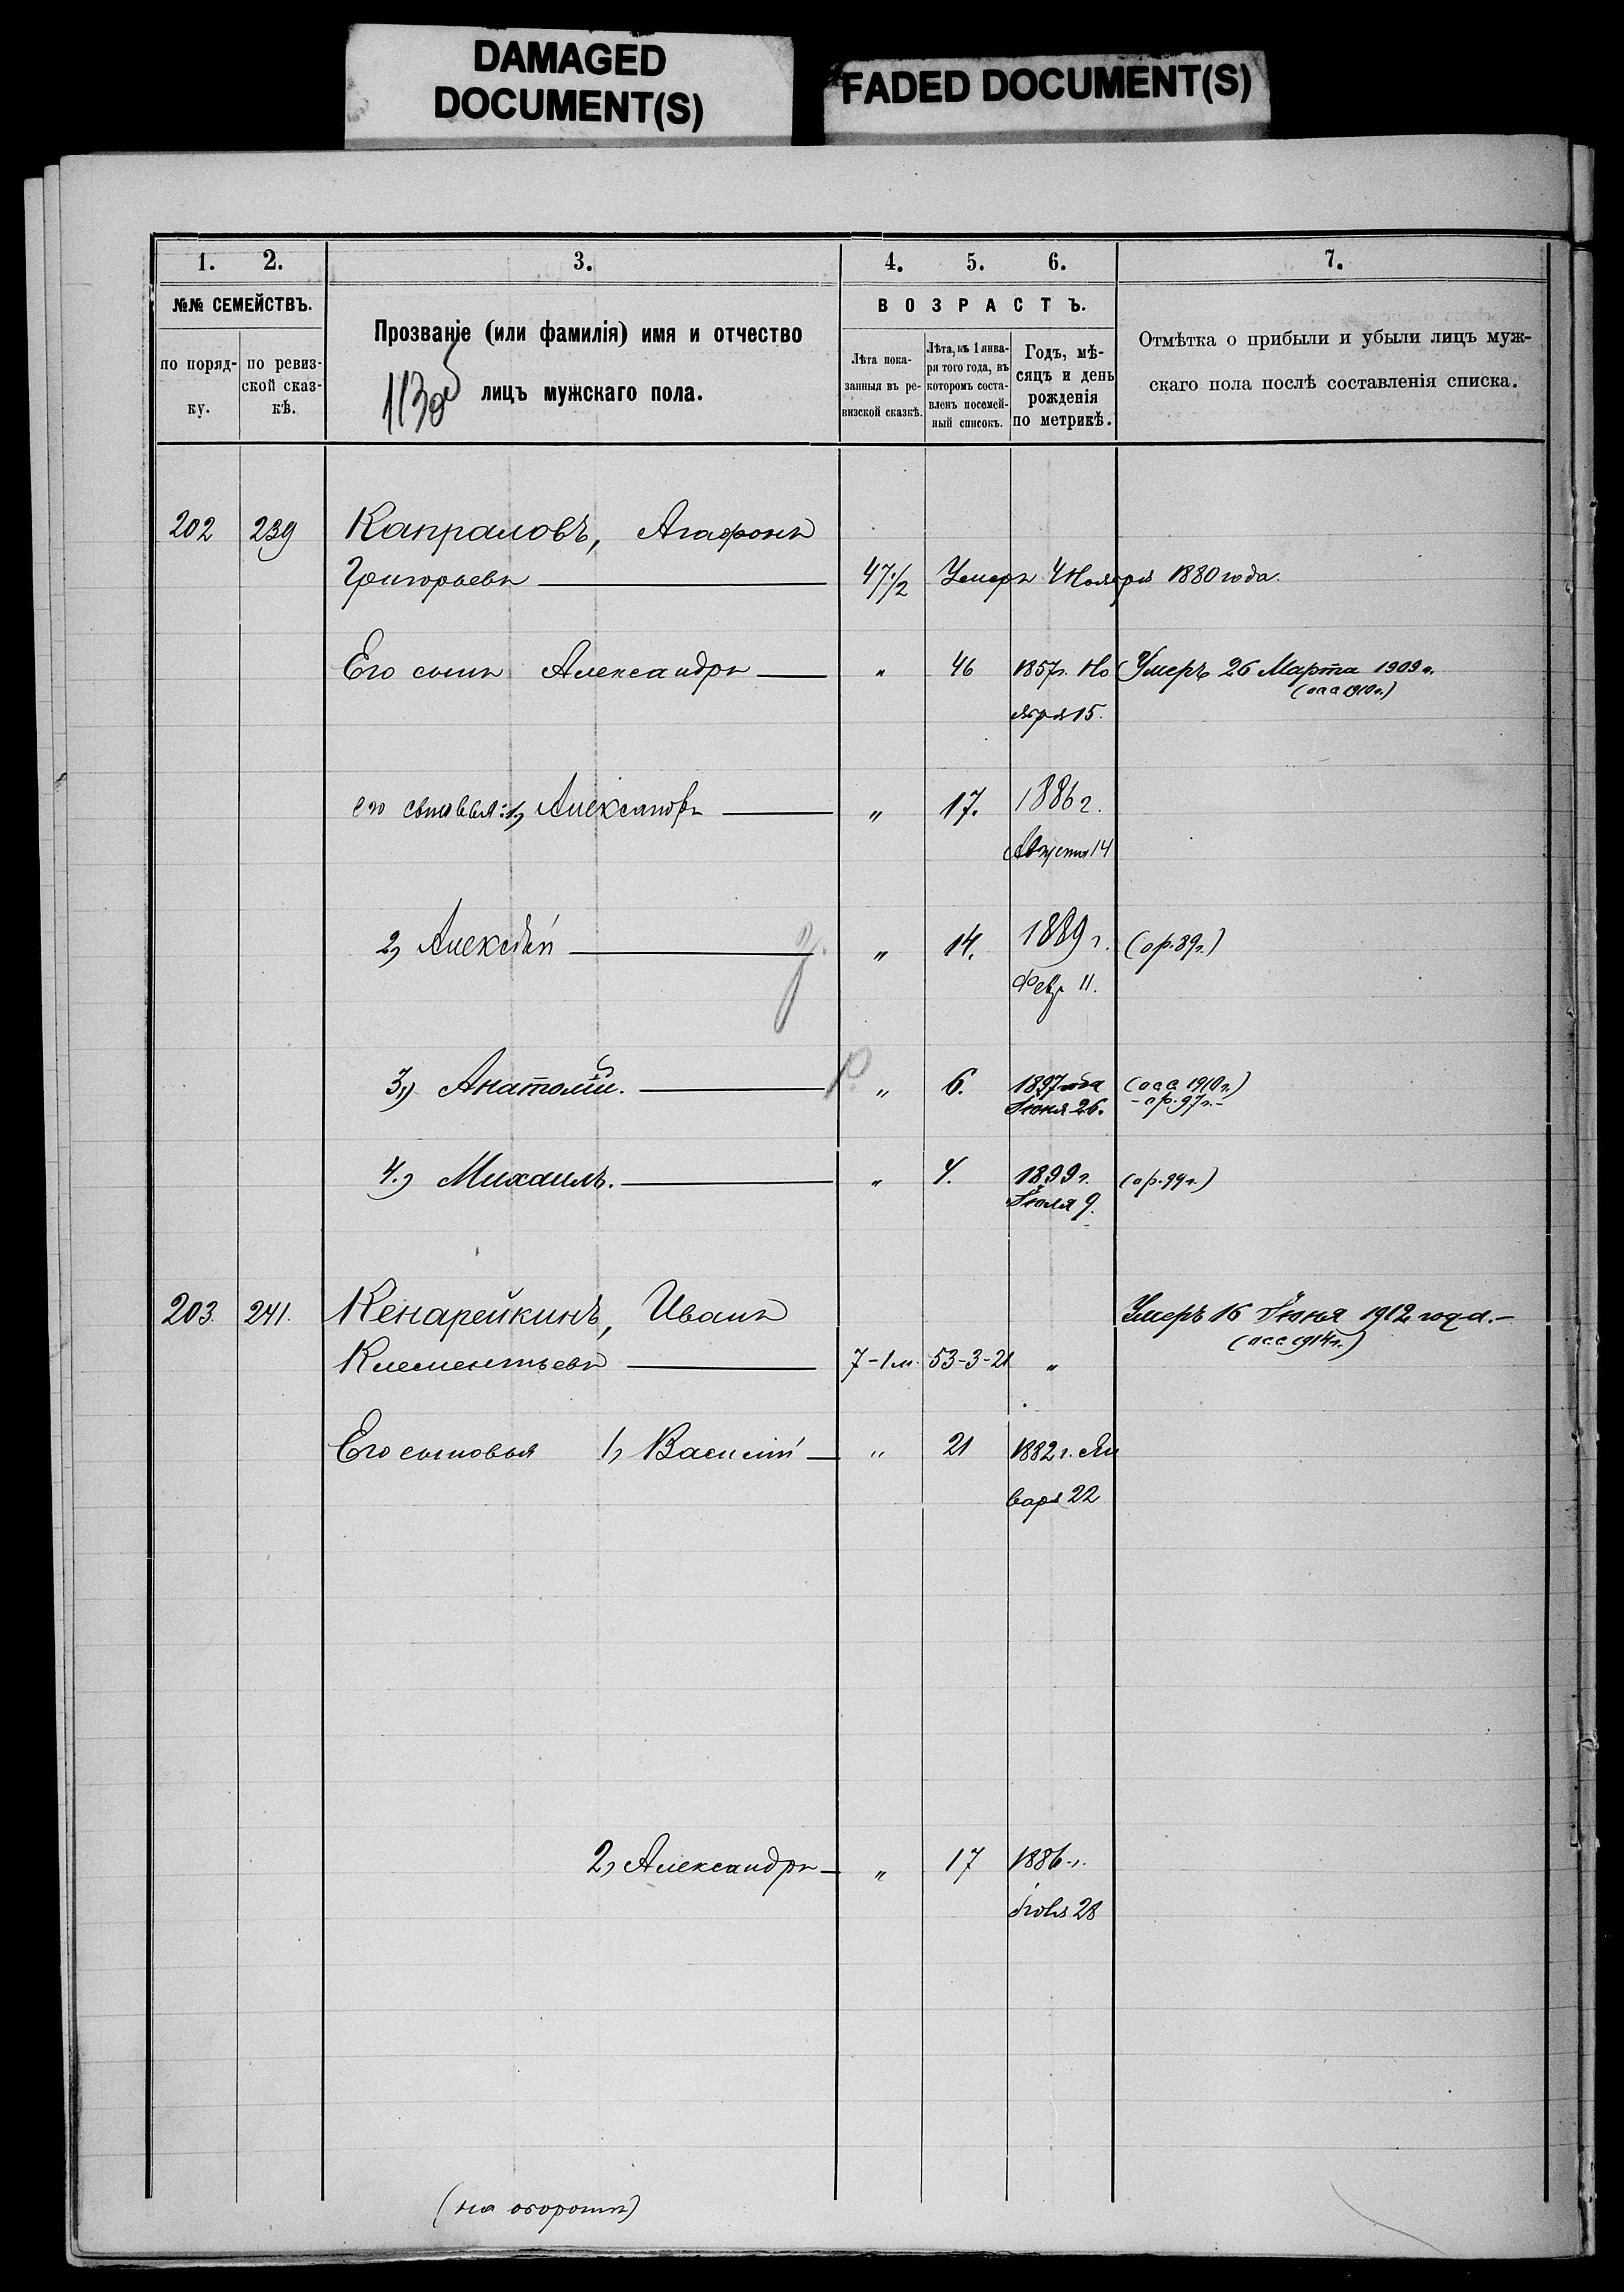 DAMAGED
DOCUMENT(S)
FADED DOCUMENT(S)
1. 2. 3. 4. 5. 6. 7.
№№ СЕМЕЙСТВЪ.
по поряд-
ку.
по ревиз-
ской сказ-
кѣ.
Прозваніе (или фамилія) имя и отчество
лицъ мужскаго пола.
113об
ВОЗРАСТЪ.
Лѣта пока-
занныя въ ре-
визской сказкѣ.
Лѣта, къ 1 янва-
ря того года, въ
которомъ соста-
вленъ посемей-
ный списокъ.
Годъ, мѣ-
сяцъ и день
рожденія
по метрикѣ.
Отмѣтка о прибыли и убыли лицъ муж-
скаго пола послѣ составленія списка.
202 239 Капраловъ, Агафонъ
Григорьевъ 47 1/2 Умеръ 4 Ноября 1880 года.
Его сынъ Александръ " 46 1857г. Но Умеръ 26 Марта 1909 г.
ября 15. (1910 г.)
его сыновья: 1, Александръ " 17. 1886 г.
Августа 14
2, Алексѣй " 14. 1889 г. (ар. 89 г.)
Февр 11.
3,) Анатолій. " 6. 1897 года (1910 г.)
Іюня 26. - ар. 97 г. -
4.) Михаилъ. " 4. 1899 г. (ар. 99 г.)
Іюля 9.
203. 241. Кенарейкинъ, Иванъ Умеръ 16 Іюня 1912 года. -
(1914 г.)
Клементьевъ 7-1 м. 53-3-21 "
Его сыновья 1, Василій " 21 1882 г. Ян
варя 22
2, Александръ " 17 1886 г.
28
(на оборотѣ)